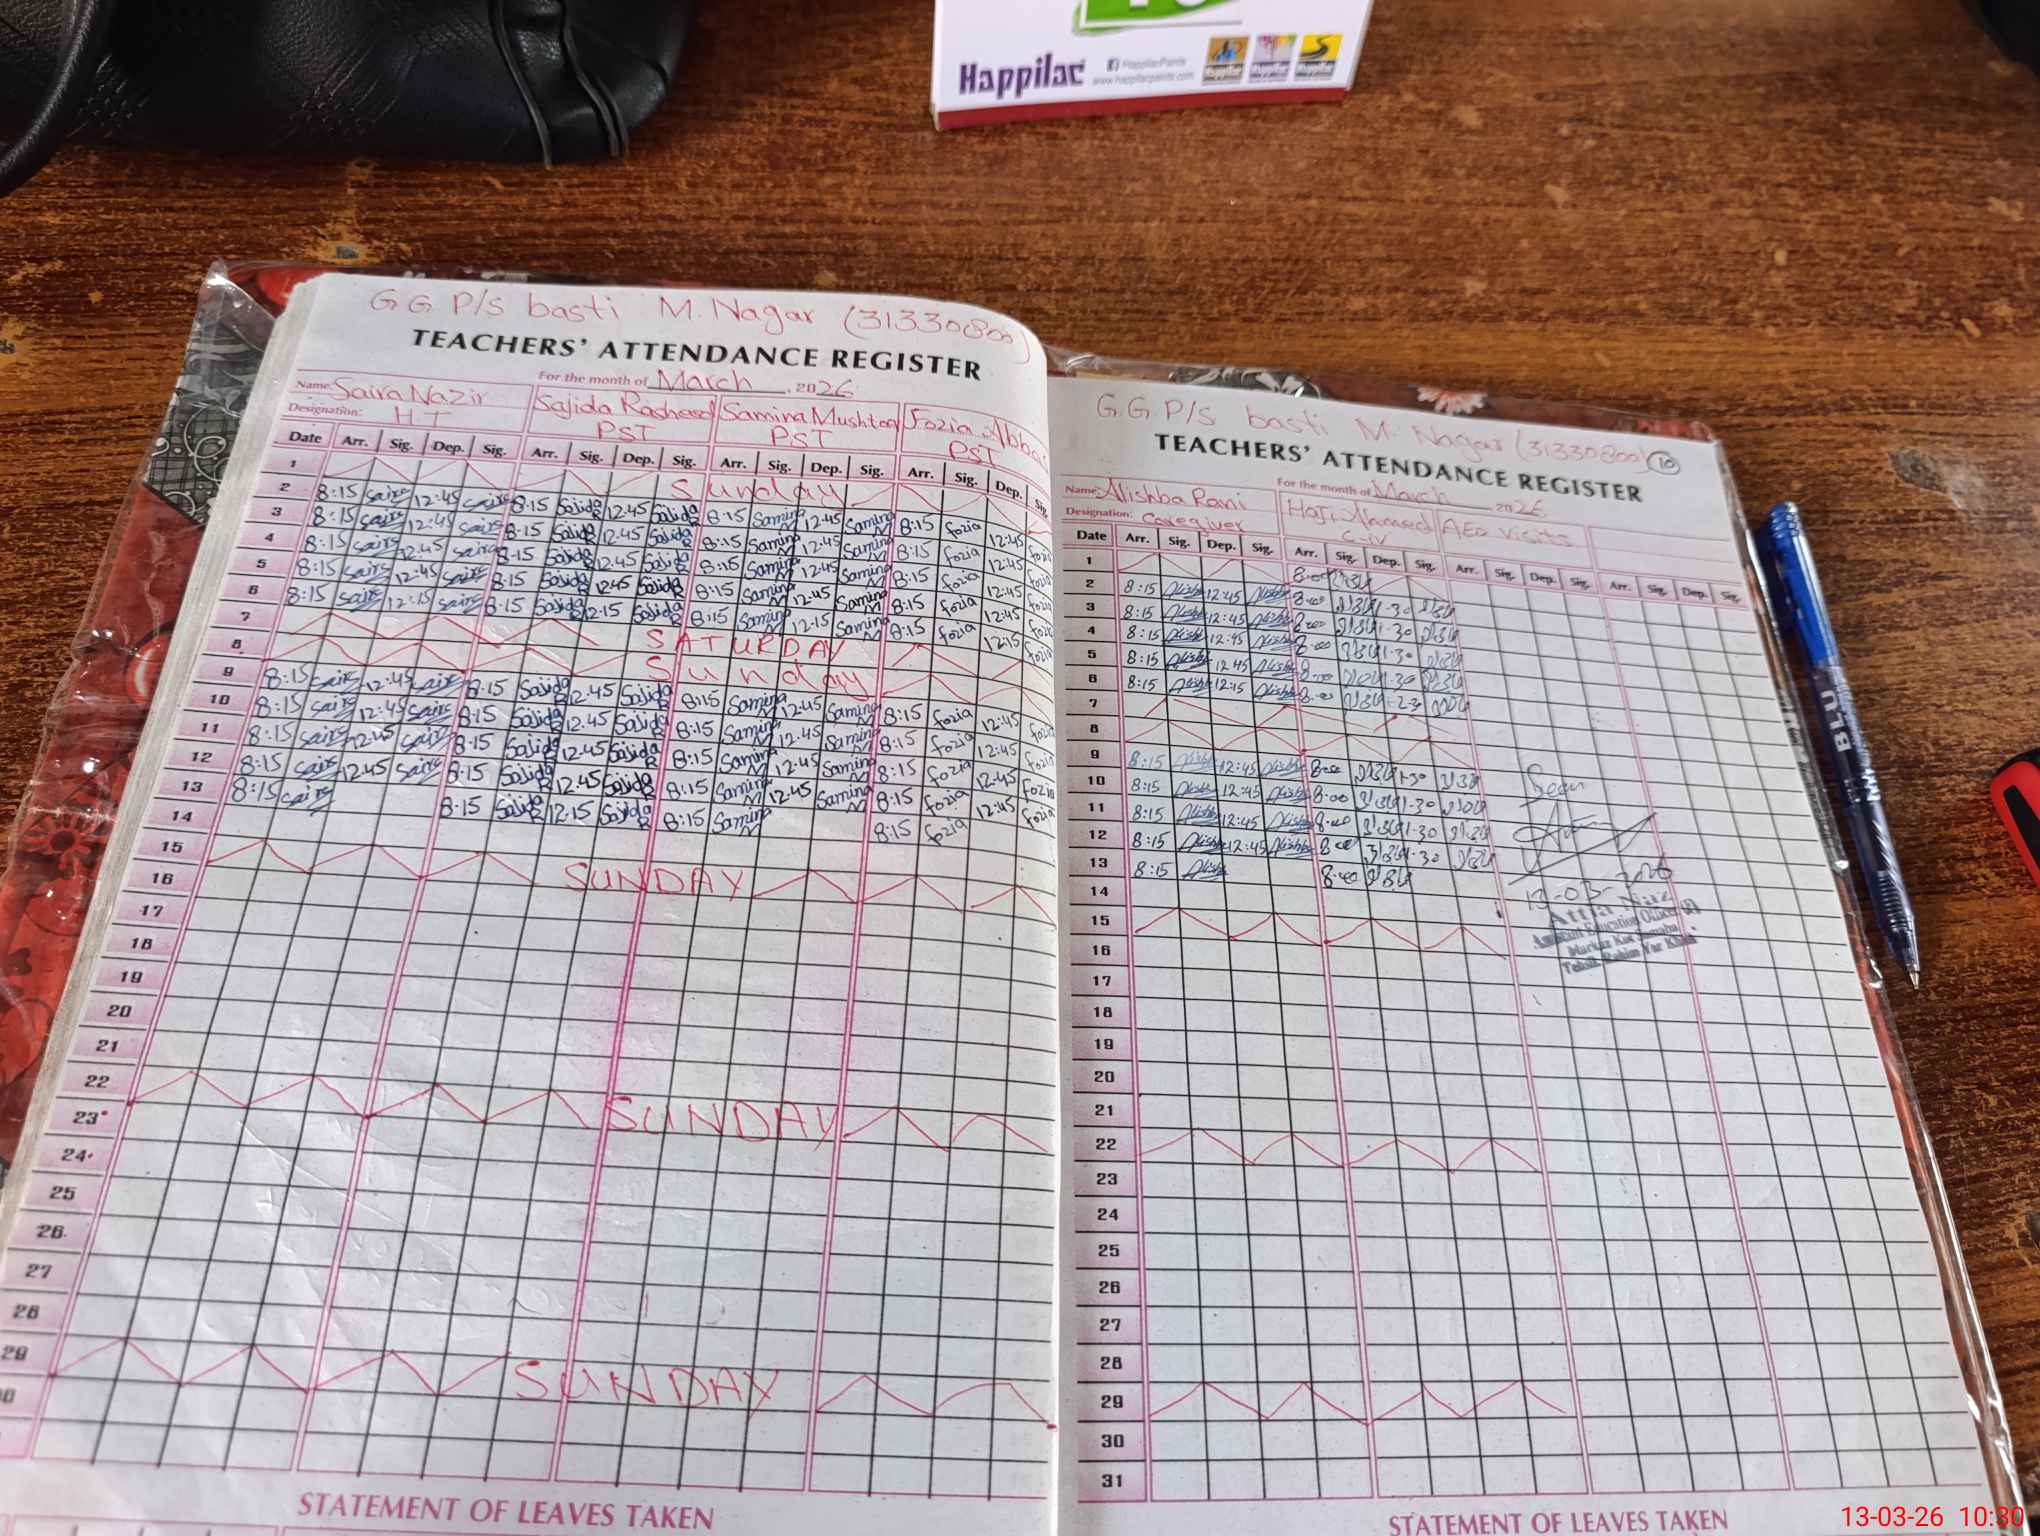 Happilac
HappilacPaints
www.happilacpaints.com
G.G P/S basti M. Nagar (31330800)
TEACHERS' ATTENDANCE REGISTER
For the month of March 2026
Name: Saira Nazir Sajida Rasheed Samina Mushtaq Fozia Abbas
Designation: H T PST PST PST
Date Arr. Sig. Dep. Sig. Arr. Sig. Dep. Sig. Arr. Sig. Dep. Sig. Arr. Sig. Dep. Sig.
1 Sunday
2 8:15 Saira 12:45 Saira 8:15 Sajida R 12:45 Sajida R 8:15 Samina M 12:45 Samina M 8:15 fozia 12:45 fozia
3 8:15 Saira 12:45 Saira 8:15 Sajida R 12:45 Sajida R 8:15 Samina M 12:45 Samina M 8:15 fozia 12:45 fozia
4 8:15 Saira 12:45 Saira 8:15 Sajida R 12:45 Sajida R 8:15 Samina M 12:45 Samina M 8:15 fozia 12:45 fozia
5 8:15 Saira 12:45 Saira 8:15 Sajida R 12:45 Sajida R 8:15 Samina M 12:45 Samina M 8:15 fozia 12:45 fozia
6 8:15 Saira 12:15 Saira 8:15 Sajida R 12:15 Sajida R 8:15 Samina M 12:15 Samina M 8:15 fozia 12:15 fozia
7 SATURDAY
8 Sunday
9 8:15 Saira 12:45 Saira 8:15 Sajida R 12:45 Sajida R 8:15 Samina M 12:45 Samina M 8:15 fozia 12:45 fozia
10 8:15 Saira 12:45 Saira 8:15 Sajida R 12:45 Sajida R 8:15 Samina M 12:45 Samina M 8:15 fozia 12:45 fozia
11 8:15 Saira 12:45 Saira 8:15 Sajida R 12:45 Sajida R 8:15 Samina M 12:45 Samina M 8:15 fozia 12:45 Fozia
12 8:15 Saira 12:45 Saira 8:15 Sajida R 12:45 Sajida R 8:15 Samina M 12:45 Samina M 8:15 fozia 12:45 fozia
13 8:15 Saira 8:15 Sajida R 12:15 Sajida R 8:15 Samina M 8:15 fozia
14
15 SUNDAY
16
17
18
19
20
21
22 SUNDAY
23
24
25
26
27
28
29 SUNDAY
STATEMENT OF LEAVES TAKEN
G.G P/S basti M. Nagar (31330800) 10
TEACHERS' ATTENDANCE REGISTER
For the month of March 2026
Name: Alishba Rani AEO Visits
Designation: Caregiver C-IV
Date Arr. Sig. Dep. Sig. Arr. Sig. Dep. Sig. Arr. Sig. Dep. Sig. Arr. Sig. Dep. Sig.
1 8:00
2 8:15 Alishba 12:45 Alishba 8:00 1-30
3 8:15 Alishba 12:45 Alishba 8:00 1-30
4 8:15 Alishba 12:45 Alishba 8:00 1-30
5 8:15 Alishba 12:45 Alishba 8:00 1-30
6 8:15 Alishba 12:15 Alishba 8:00
7
8
9 8:15 Alishba 12:45 Alishba 8:00 1-30
10 8:15 Alishba 12:45 Alishba 8:00 1-30
11 8:15 Alishba 12:45 Alishba 8:00 1-30
12 8:15 Alishba 12:45 Alishba 8:00 1-30
13 8:15 Alishba 8:00
14
15
16
17
18
19
20
21
22
23
24
25
26
27
28
29
30
31
Seen
13-03-2026
Attia Naz
Assistant Education Officer
Markaz Kot
Tehsil Rahim Yar Khan
STATEMENT OF LEAVES TAKEN
BLU
13-03-26 10:30